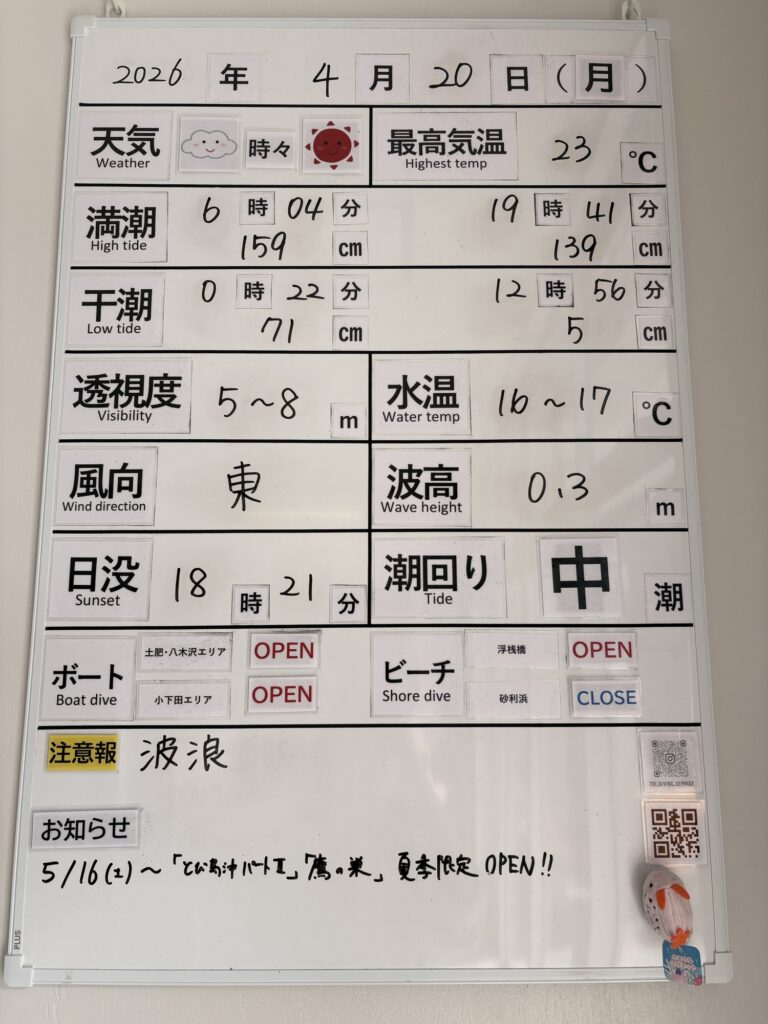 2026 年 4 月 20 日 (月)
天気 時々
Weather
最高気温 23 ℃
Highest temp
満潮 6 時 04 分 19 時 41 分
High tide 159 cm 139 cm
干潮 0 時 22 分 12 時 56 分
Low tide 71 cm 5 cm
透視度 5~8 m
Visibility
水温 16~17 ℃
Water temp
風向 東
Wind direction
波高 0.3 m
Wave height
日没 18 時 21 分
Sunset
潮回り 中 潮
Tide
ボート
Boat dive
土肥・八木沢エリア OPEN
小下田エリア OPEN
ビーチ
Shore dive
浮桟橋 OPEN
砂利浜 CLOSE
注意報 波浪
TOI DIVING SERVICE
お知らせ
5/16(土)~「とび島沖パートⅡ」「鷹の巣」夏季限定OPEN!!
PLUS